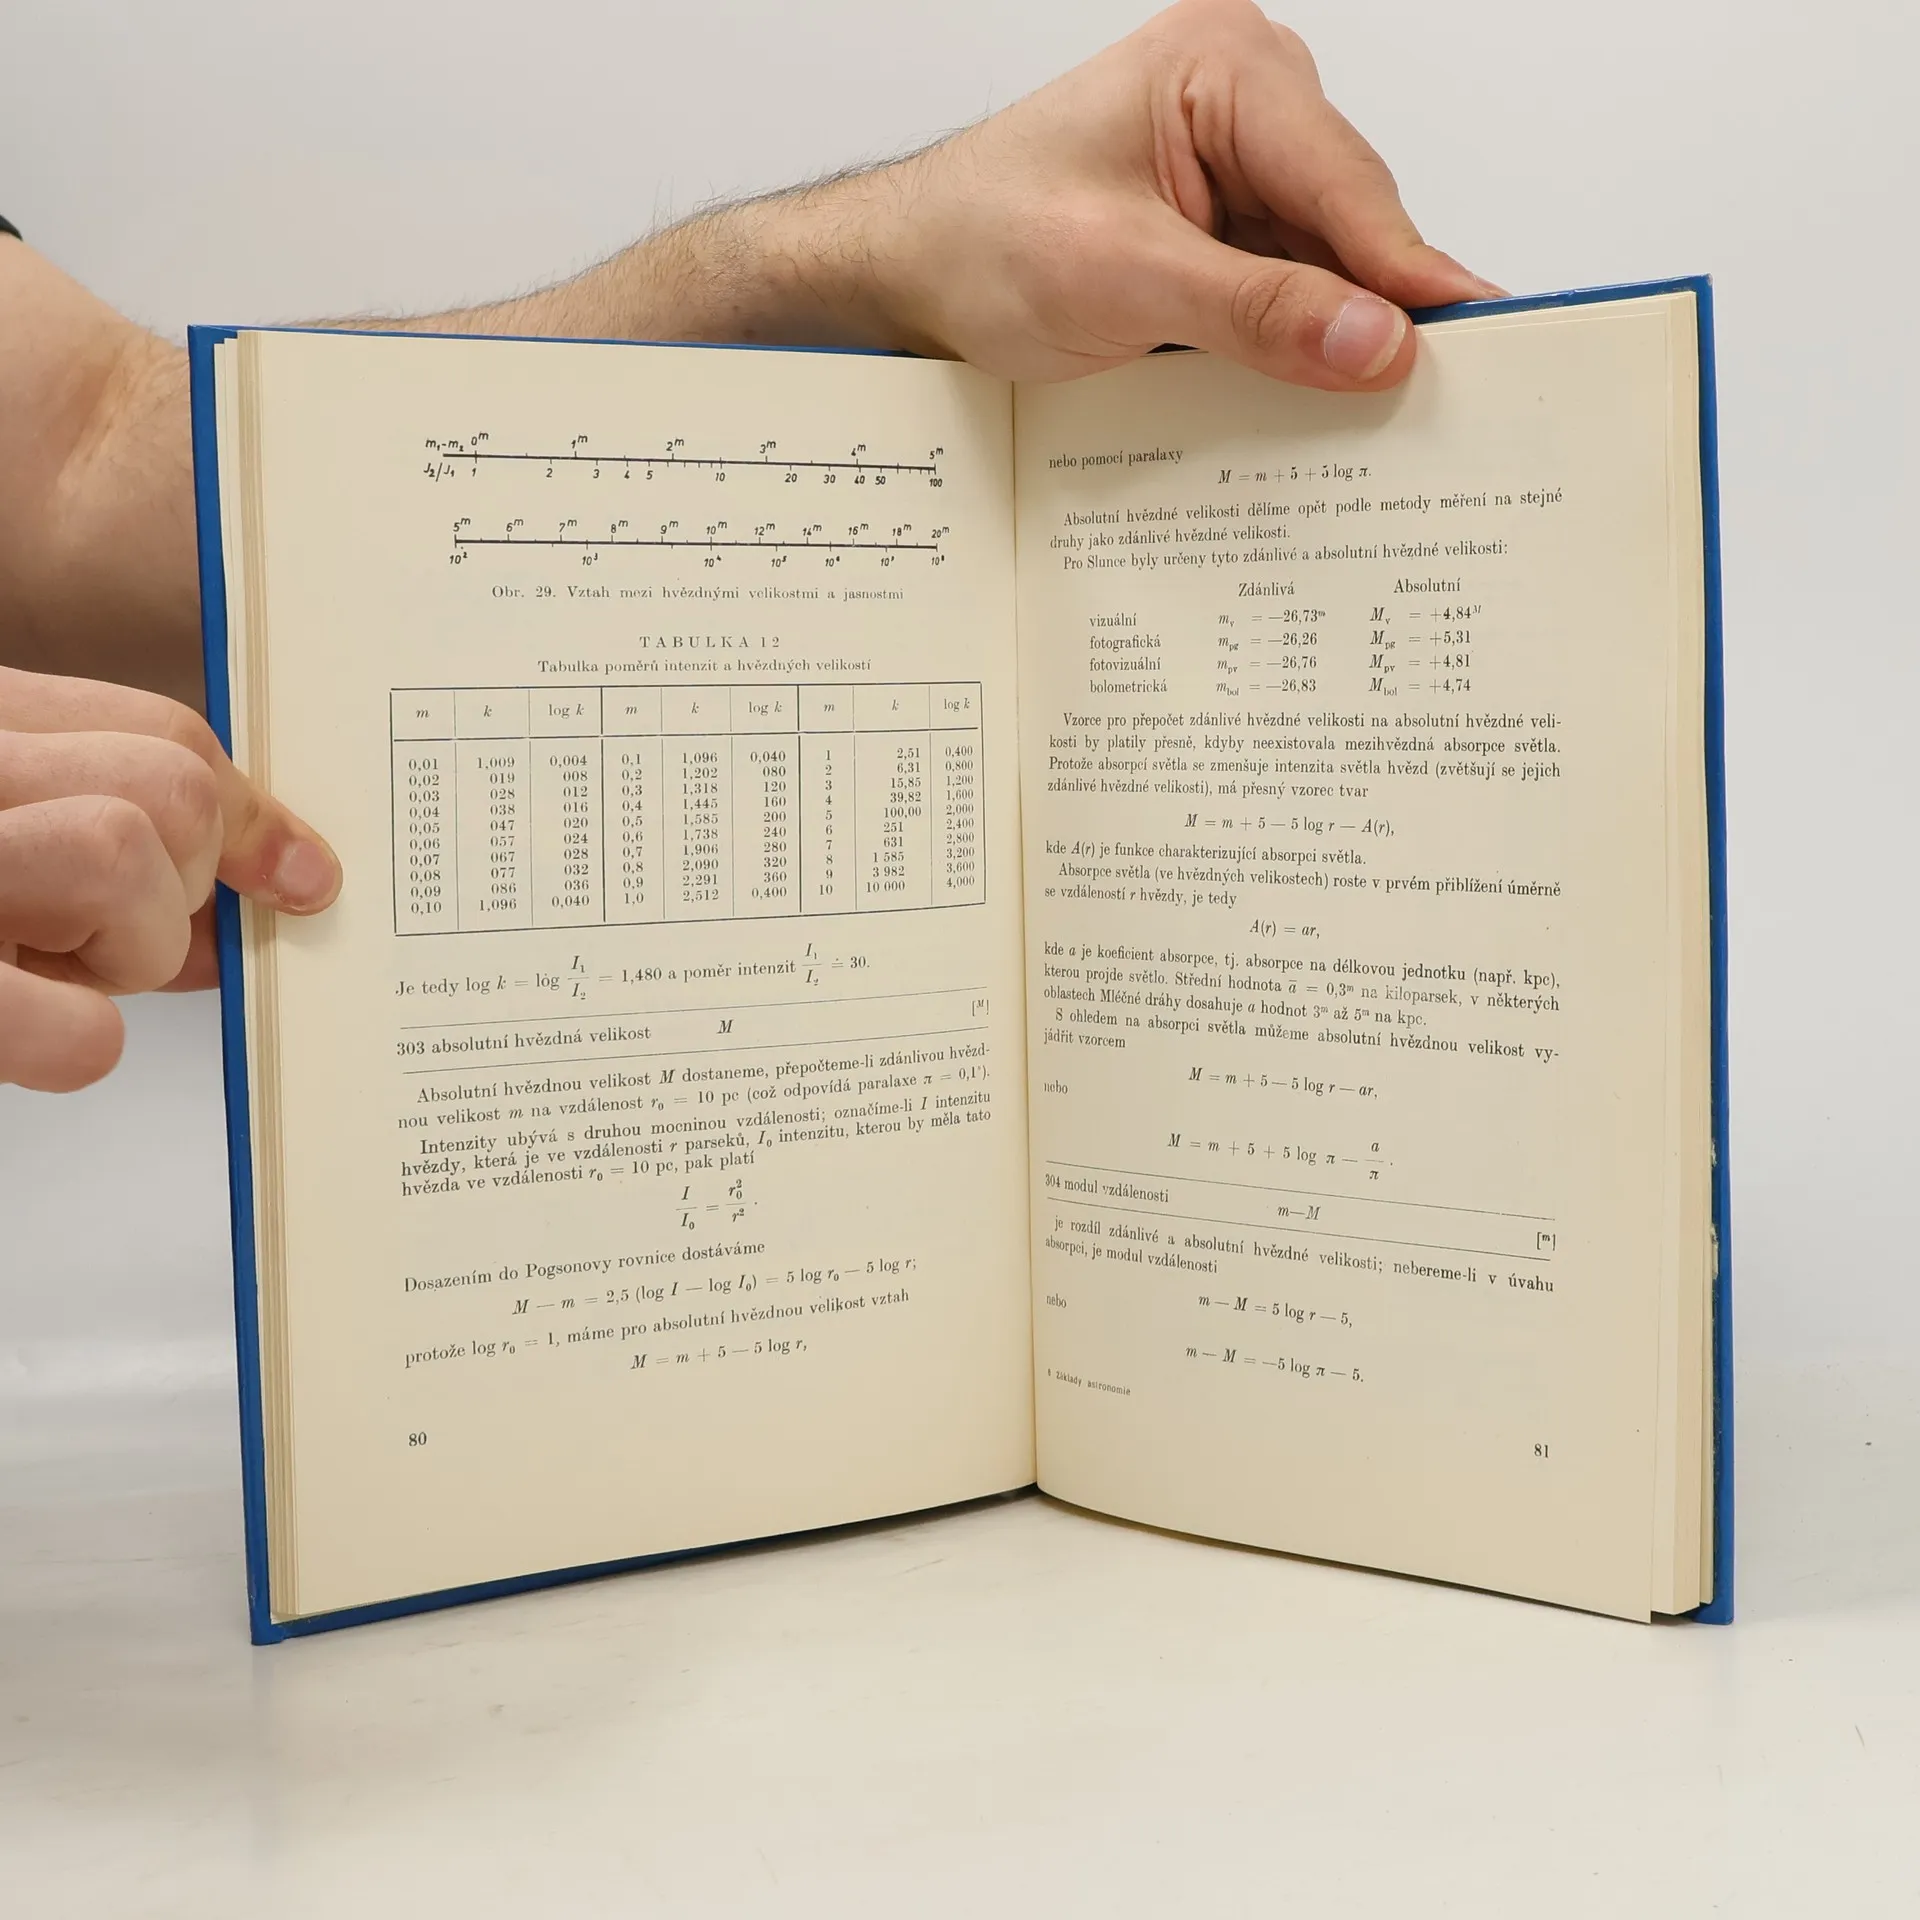 m₁-m₂ 0ᵐ 1ᵐ 2ᵐ 3ᵐ 4ᵐ 5ᵐ
J₂/J₁ 1 2 3 4 5 10 20 30 40 50 100
5ᵐ 6ᵐ 7ᵐ 8ᵐ 9ᵐ 10ᵐ 12ᵐ 14ᵐ 16ᵐ 18ᵐ 20ᵐ
10² 10³ 10⁴ 10⁵ 10⁶ 10⁷ 10⁸
Obr. 29. Vztah mezi hvězdnými velikostmi a jasnostmi
TABULKA 12
Tabulka poměrů intenzit a hvězdných velikostí
m k log k m k log k m k log k
0,01 1,009 0,004 0,1 1,096 0,040 1 2,51 0,400
0,02 019 008 0,2 1,202 080 2 6,31 0,800
0,03 028 012 0,3 1,318 120 3 15,85 1,200
0,04 038 016 0,4 1,445 160 4 39,82 1,600
0,05 047 020 0,5 1,585 200 5 100,00 2,000
0,06 057 024 0,6 1,738 240 6 251 2,400
0,07 067 028 0,7 1,906 280 7 631 2,800
0,08 077 032 0,8 2,090 320 8 1 585 3,200
0,09 086 036 0,9 2,291 360 9 3 982 3,600
0,10 1,096 0,040 1,0 2,512 0,400 10 10 000 4,000
Je tedy log k = log I₁/I₂ = 1,480 a poměr intenzit I₁/I₂ ≐ 30.
303 absolutní hvězdná velikost M [ᴹ]
Absolutní hvězdnou velikost M dostaneme, přepočteme-li zdánlivou hvězd-
nou velikost m na vzdálenost r₀ = 10 pc (což odpovídá paralaxe π = 0,1″).
Intenzity ubývá s druhou mocninou vzdálenosti; označíme-li I intenzitu
hvězdy, která je ve vzdálenosti r parseků, I₀ intenzitu, kterou by měla tato
hvězda ve vzdálenosti r₀ = 10 pc, pak platí
I/I₀ = r₀²/r².
Dosazením do Pogsonovy rovnice dostáváme
M — m = 2,5 (log I — log I₀) = 5 log r₀ — 5 log r;
protože log r₀ = 1, máme pro absolutní hvězdnou velikost vztah
M = m + 5 — 5 log r,
80
nebo pomocí paralaxy
M = m + 5 + 5 log π.
Absolutní hvězdné velikosti dělíme opět podle metody měření na stejné
druhy jako zdánlivé hvězdné velikosti.
Pro Slunce byly určeny tyto zdánlivé a absolutní hvězdné velikosti:
Zdánlivá Absolutní
vizuální mᵥ = —26,73ᵐ Mᵥ = +4,84ᴹ
fotografická m_pg = —26,26 M_pg = +5,31
fotovizuální m_pv = —26,76 M_pv = +4,81
bolometrická m_bol = —26,83 M_bol = +4,74
Vzorce pro přepočet zdánlivé hvězdné velikosti na absolutní hvězdné veli-
kosti by platily přesně, kdyby neexistovala mezihvězdná absorpce světla.
Protože absorpcí světla se zmenšuje intenzita světla hvězd (zvětšují se jejich
zdánlivé hvězdné velikosti), má přesný vzorec tvar
M = m + 5 — 5 log r — A(r),
kde A(r) je funkce charakterizující absorpci světla.
Absorpce světla (ve hvězdných velikostech) roste v prvém přiblížení úměrně
se vzdáleností r hvězdy, je tedy
A(r) = ar,
kde a je koeficient absorpce, tj. absorpce na délkovou jednotku (např. kpc),
kterou projde světlo. Střední hodnota a̅ = 0,3ᵐ na kiloparsek, v některých
oblastech Mléčné dráhy dosahuje a hodnot 3ᵐ až 5ᵐ na kpc.
S ohledem na absorpci světla můžeme absolutní hvězdnou velikost vy-
jádřit vzorcem
M = m + 5 — 5 log r — ar,
nebo
M = m + 5 + 5 log π — a/π.
304 modul vzdálenosti m—M [ᵐ]
je rozdíl zdánlivé a absolutní hvězdné velikosti; nebereme-li v úvahu
absorpci, je modul vzdálenosti
m — M = 5 log r — 5,
nebo
m — M = —5 log π — 5.
Základy astronomie
81